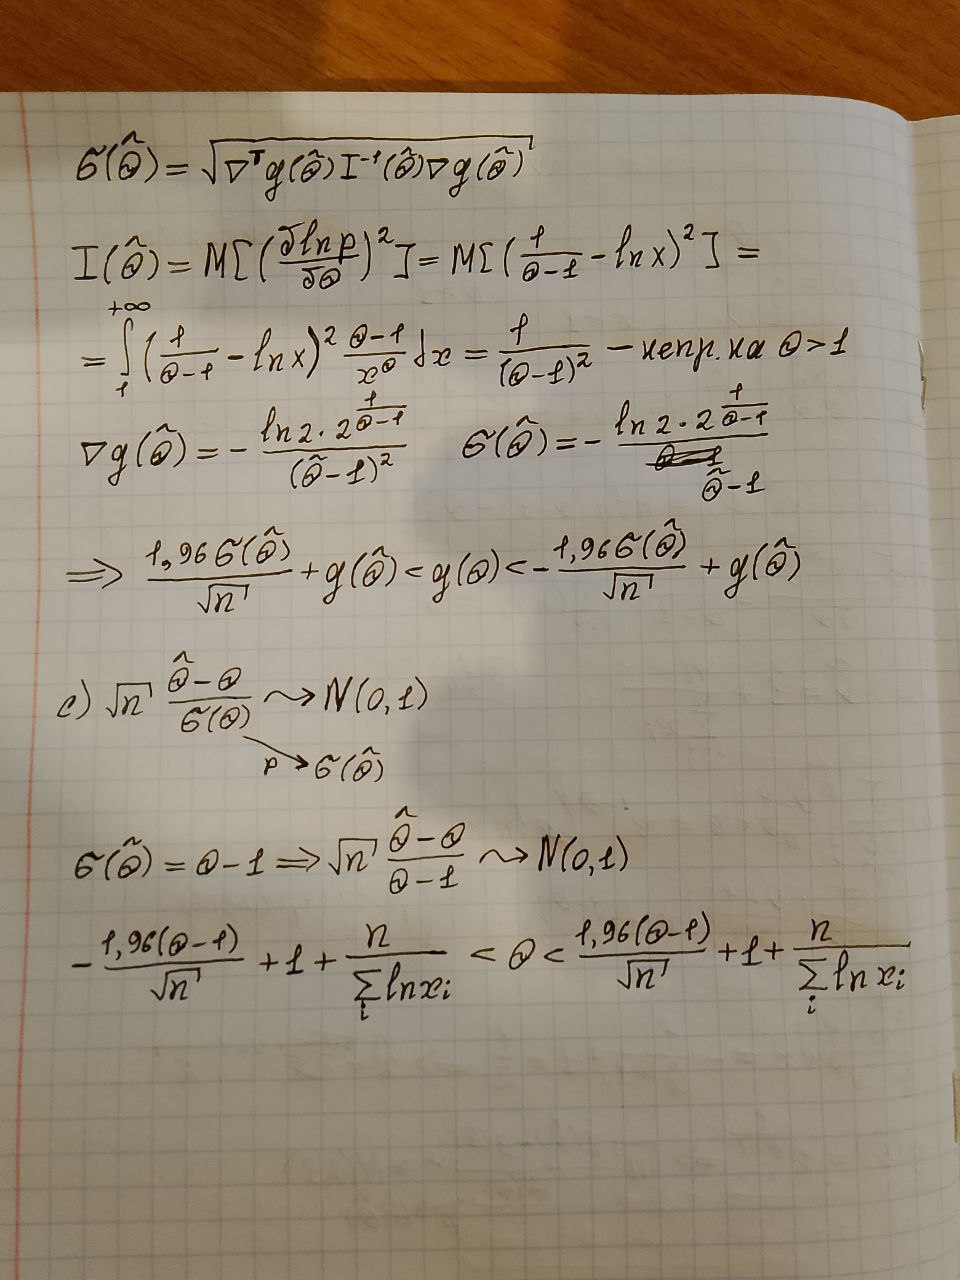 σ(θ̃) = √(∇ᵀg(θ̃) I⁻¹(θ̃) ∇g(θ̃))
I(θ̃) = M[(∂lnp/∂θ)²] = M[(1/(θ-1) - ln x)²] =
= ∫₁^{+∞} (1/(θ-1) - ln x)² (θ-1)/x^θ dx = 1/(θ-1)² - непр. на θ>1
∇g(θ̃) = - (ln2·2^{1/(θ̃-1)})/(θ̃-1)² σ(θ̃) = - (ln2·2^{1/(θ̃-1)})/(θ̃-1)
=> 1,96σ(θ̃)/√n + g(θ̃) < g(θ) < - 1,96σ(θ̃)/√n + g(θ̃)
c) √n (θ̃-θ)/σ(θ) ⇝ N(0,1)
P → σ(θ̃)
σ(θ̃) = θ-1 => √n (θ̃-θ)/(θ-1) ⇝ N(0,1)
- 1,96(θ-1)/√n + 1 + n/(∑ᵢ ln xᵢ) < θ < 1,96(θ-1)/√n + 1 + n/(∑ᵢ ln xᵢ)